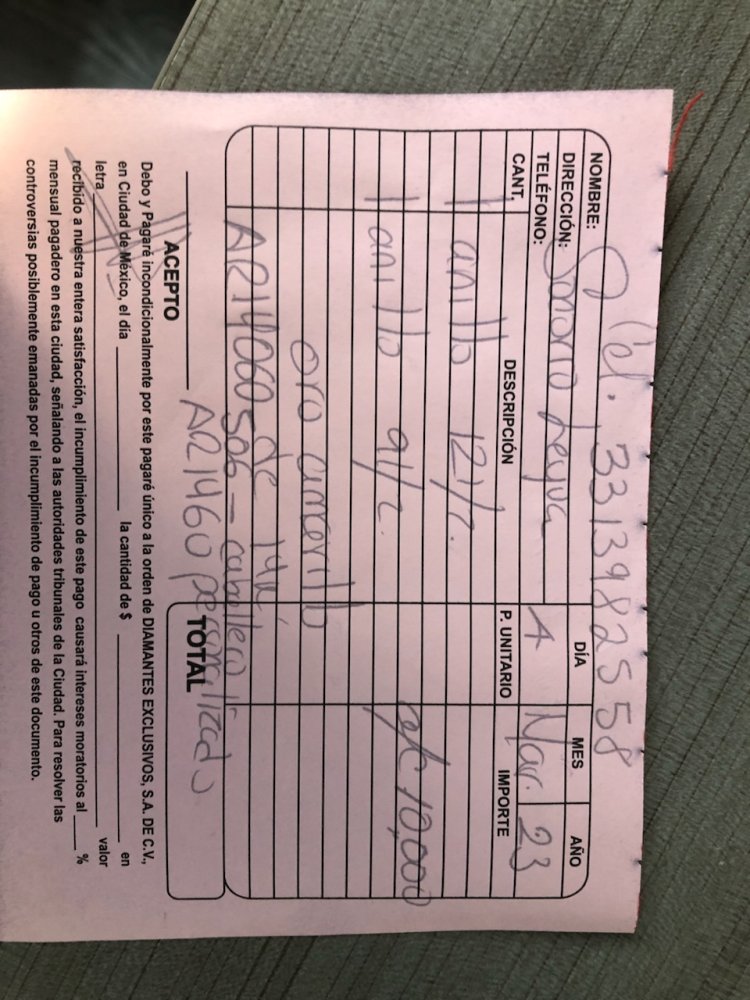 Cel. 3313982558
NOMBRE:
DIRECCIÓN: Sonora Leyva
TELÉFONO:
DÍA MES AÑO
4 Mar. 23
CANT. DESCRIPCIÓN P. UNITARIO IMPORTE
1 anillo 12 1/2.
1 anillo 9 1/2. a/c 10,000
oro amarillo
de 14k.
AR14060506 - caballero
AR1460 personalizado
TOTAL
ACEPTO
Debo y Pagaré incondicionalmente por este pagaré único a la orden de DIAMANTES EXCLUSIVOS, S.A. DE C.V.,
en Ciudad de México, el día la cantidad de $ en
letra valor
recibido a nuestra entera satisfacción, el incumplimiento de este pago causará intereses moratorios al %
mensual pagadero en esta ciudad, señalando a las autoridades tribunales de la Ciudad. Para resolver las
controversias posiblemente emanadas por el incumplimiento de pago u otros de este documento.